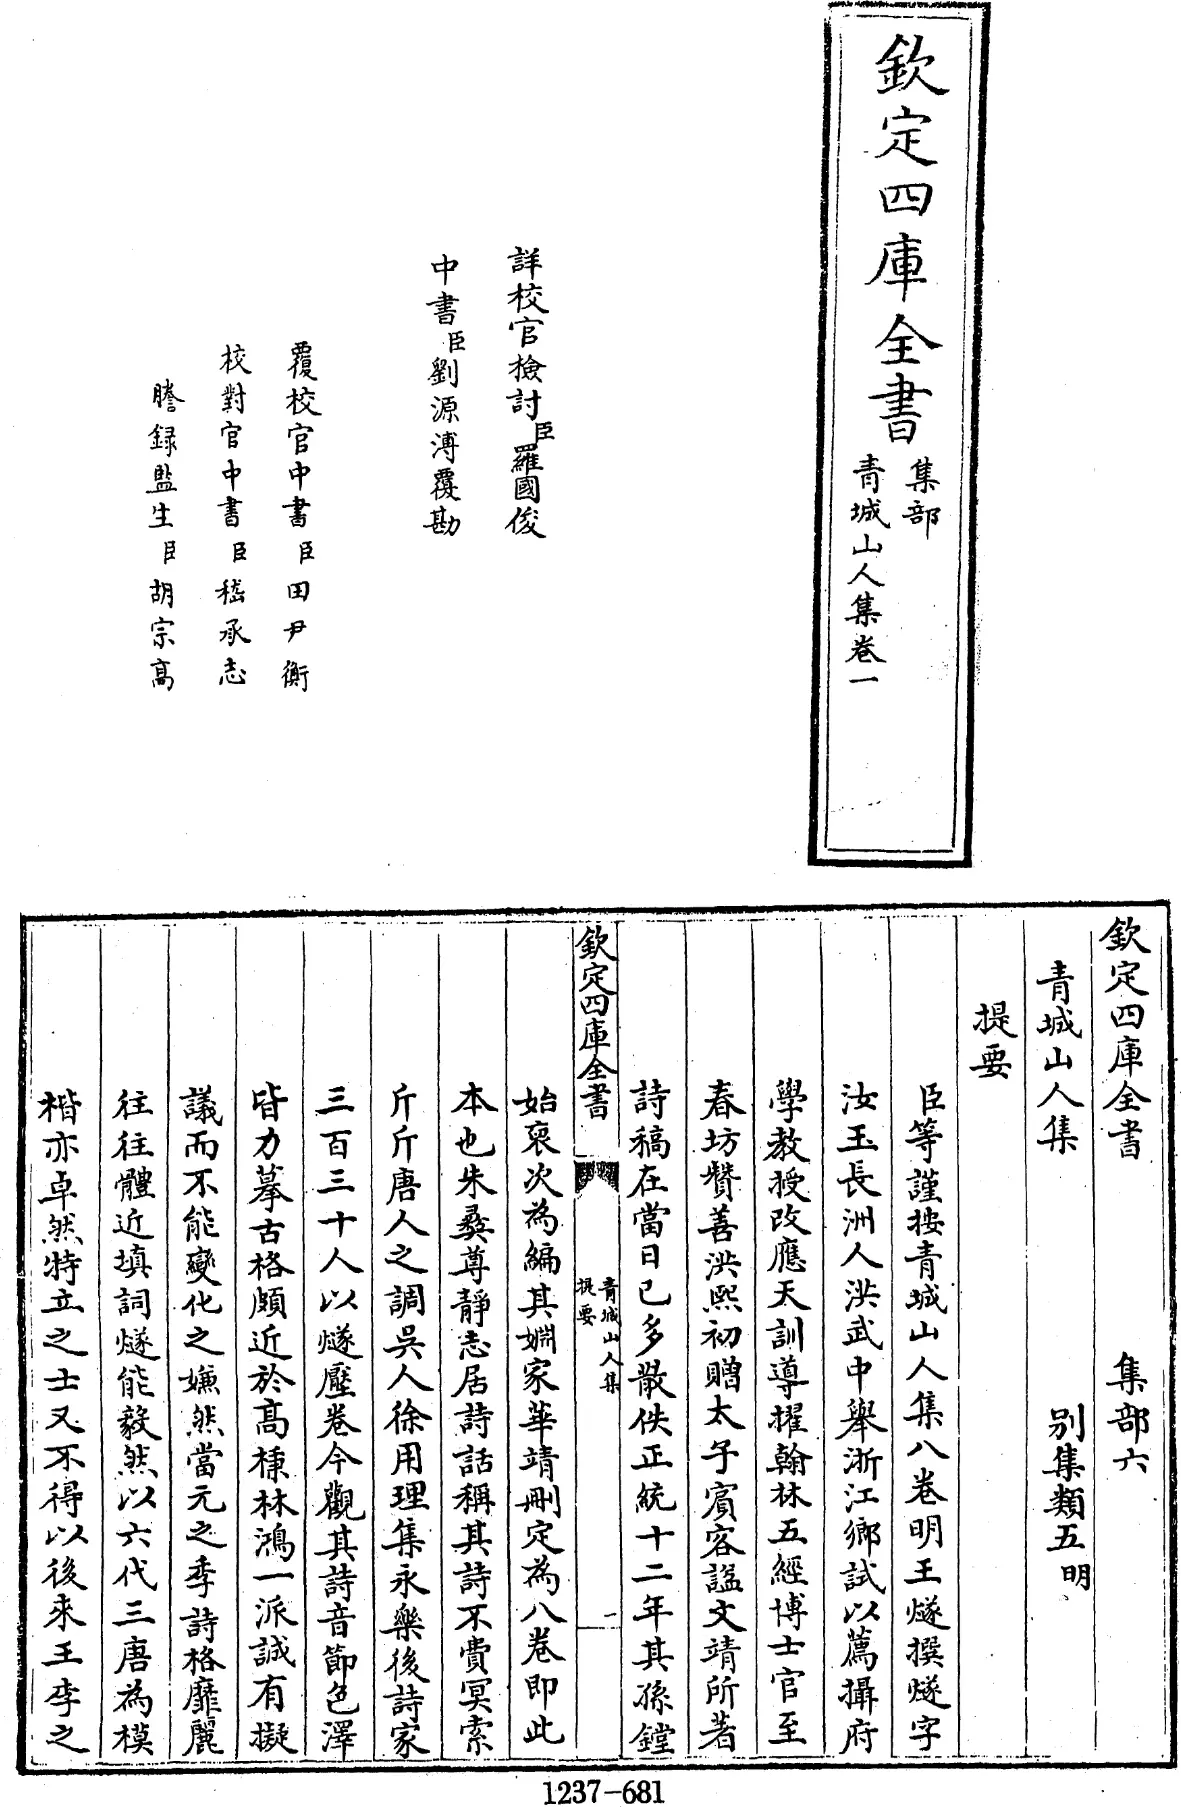 欽定四庫全書
集部
青城山人集卷一
詳校官檢討臣羅國俊
中書臣劉源溥覆勘
覆校官中書臣田尹衡
校對官中書臣嵇承志
謄録監生臣胡宗高
欽定四庫全書 集部六
青城山人集 别集類五明
提要
臣等謹按青城山人集八卷明王燧撰燧字
汝玉長洲人洪武中舉浙江鄉試以薦攝府
學教授改應天訓導擢翰林五經博士官至
春坊贊善洪熙初贈太子賓客諡文靖所著
詩稿在當日已多散佚正統十二年其孫鏜
欽定四庫全書 青城山人集 提要 一
始裒次為編其婣家華靖刪定為八卷即此
本也朱彝尊靜志居詩話稱其詩不費冥索
斤斤唐人之調吳人徐用理集永樂後詩家
三百三十人以燧壓卷今觀其詩音節色澤
皆力摹古格頗近於高棅林鴻一派誠有擬
議而不能變化之嫌然當元之季詩格靡麗
往往體近填詞燧能毅然以六代三唐為模
楷亦卓然特立之士又不得以後來王李之
1237-681